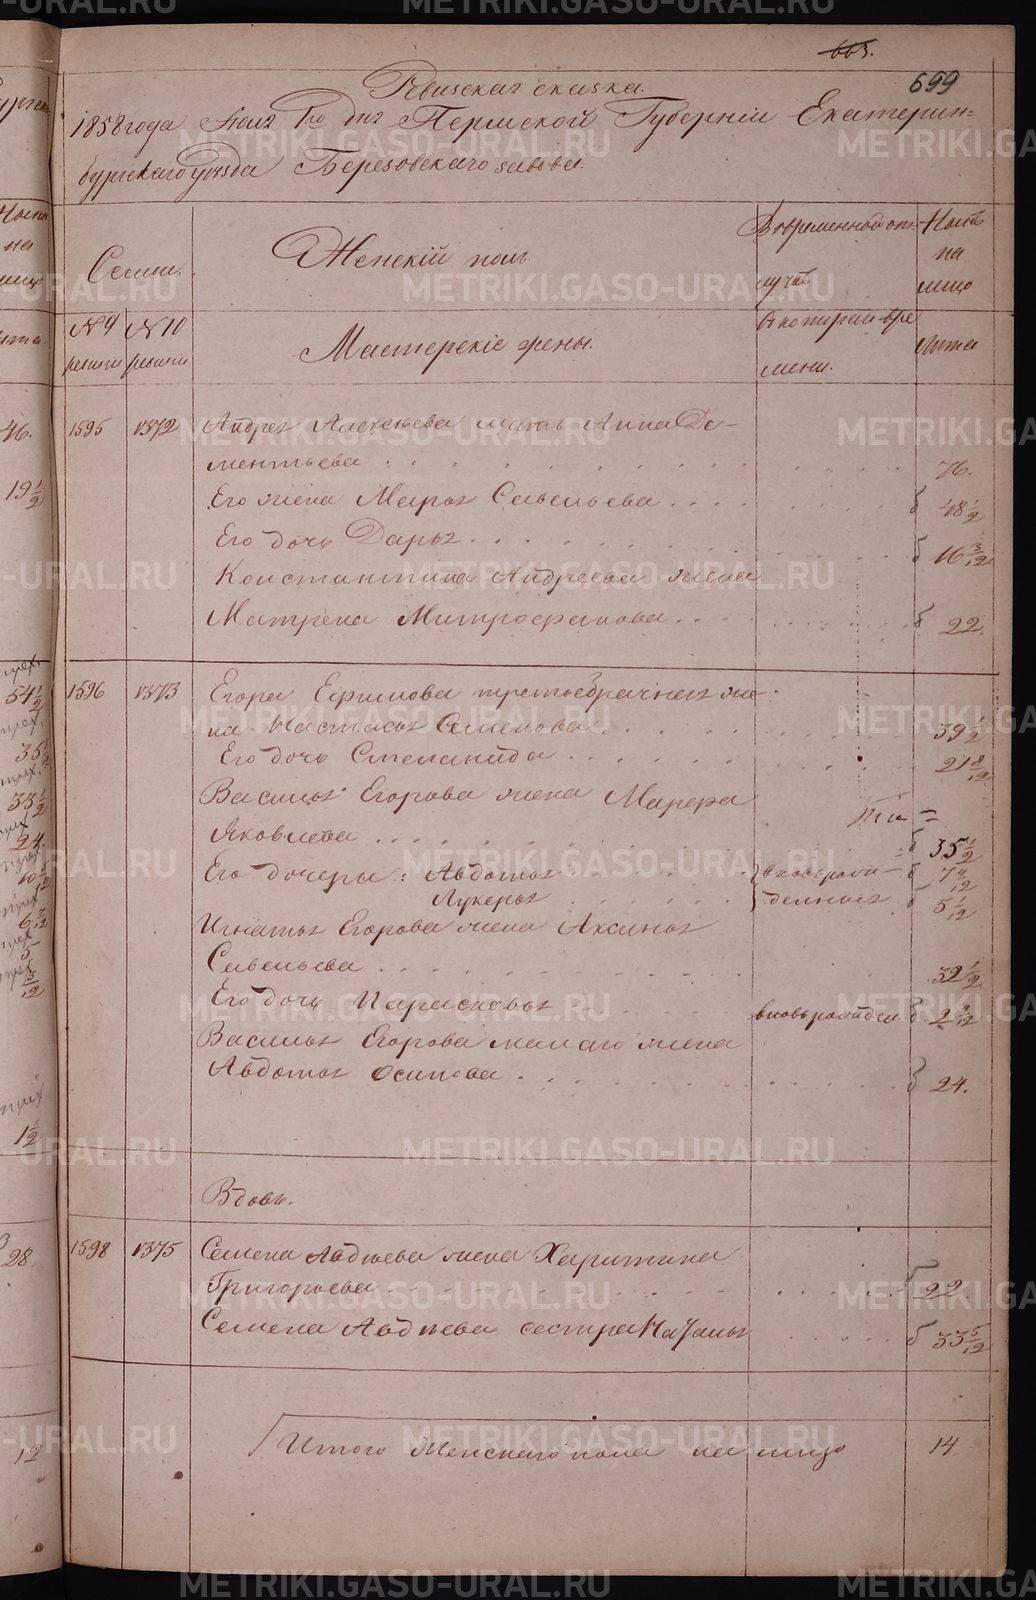 665.
699
Ревизская сказка.
1858 года Маія 10 дня Пермской Губерніи Екатерин-
бургскаго уезда Березовскаго завода.
Семьи.
Женскій полъ.
Во временной от-
лучкѣ
Налицъ
на
лицо
№ 9 ревизіи
№ 10 ревизіи
Мастерскіе жены.
Съ котораго вре
мени.
Лѣта
1595 1372 Андрея Алексѣева мать Анна Де-
ментьева 76.
Его жена Марья Савельева 48 1/2
Его дочь Дарья 16 3/12
Константина Андреева жена
Матрена Митрофанова 22.
1596 1373 Егора Ефимова третьебрачная же-
на Настасья Семенова 39 1/2
Его дочь Степанида 21 8/12
Василья Егорова жена Марфа
Яковлева 35 1/2
Его дочери: Авдотья вновьрожде- 7 4/12
Лукерья денныя 5 1/12
Игнатья Егорова жена Аксинья
Савельева 32 1/2
Его дочь Парасковья вновьрожден 2 2/12
Василья Егорова малаго жена
Авдотья Осипова 24.
Вдовы.
1598 1375 Семена Авдѣева жена Харитина
Григорьева 22
Семена Авдѣева сестра Наталья 33 5/12
Итого женскаго пола на лицо 14
46.
19 1/2
54 1/2
35
33 1/2
24.
10
6
5
3/12
1 1/2
28
12
METRIKI.GASO-URAL.RU